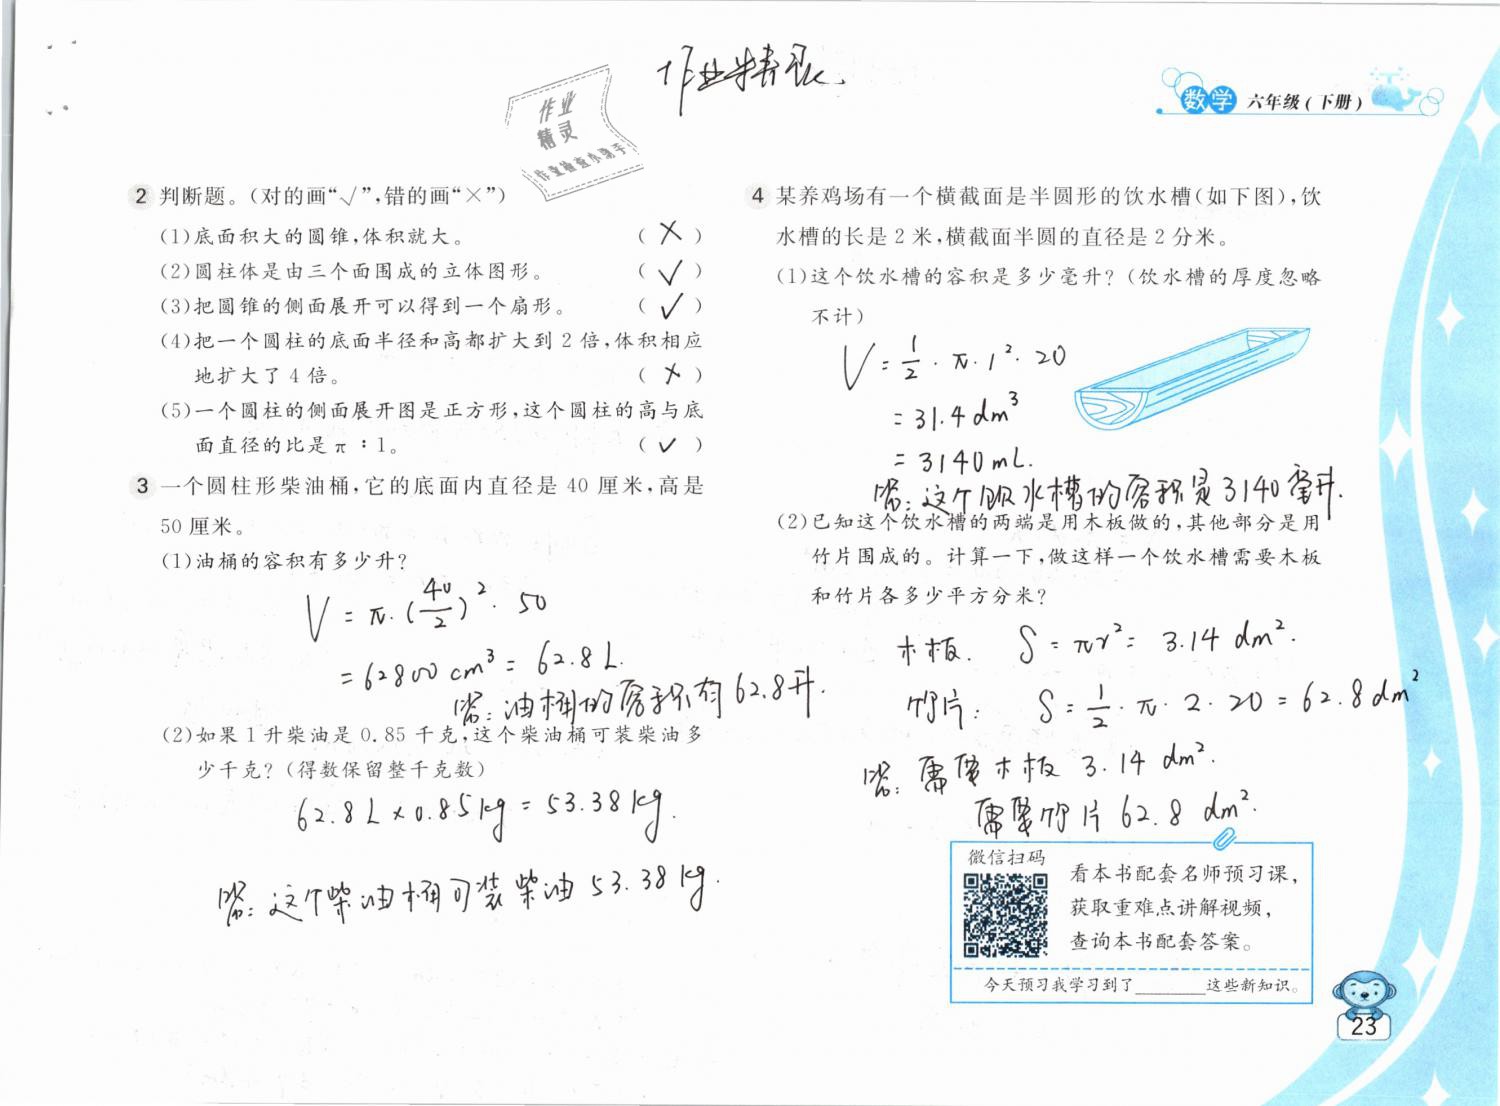 作业精灵
作业
精灵
作业检查小助手
数学 六年级(下册)
2 判断题。(对的画“√”,错的画“×”)
(1)底面积大的圆锥,体积就大。 ( × )
(2)圆柱体是由三个面围成的立体图形。 ( √ )
(3)把圆锥的侧面展开可以得到一个扇形。 ( √ )
(4)把一个圆柱的底面半径和高都扩大到 2 倍,体积相应
地扩大了 4 倍。 ( × )
(5)一个圆柱的侧面展开图是正方形,这个圆柱的高与底
面直径的比是 π∶1。 ( √ )
3 一个圆柱形柴油桶,它的底面内直径是 40 厘米,高是
50 厘米。
(1)油桶的容积有多少升?
V = π·(40/2)²·50
= 62800 cm³ = 62.8 L.
答:油桶的容积有62.8升.
(2)如果 1 升柴油是 0.85 千克,这个柴油桶可装柴油多
少千克?(得数保留整千克数)
62.8 L × 0.85 kg = 53.38 kg.
答:这个柴油桶可装柴油 53.38 kg.
4 某养鸡场有一个横截面是半圆形的饮水槽(如下图),饮
水槽的长是 2 米,横截面半圆的直径是 2 分米。
(1)这个饮水槽的容积是多少毫升?(饮水槽的厚度忽略
不计)
V = 1/2·π·1²·20
= 31.4 dm³
= 3140 mL.
答:这个饮水槽的容积是3140毫升.
(2)已知这个饮水槽的两端是用木板做的,其他部分是用
竹片围成的。计算一下,做这样一个饮水槽需要木板
和竹片各多少平方分米?
木板. S = πr² = 3.14 dm².
竹片: S = 1/2·π·2·20 = 62.8 dm²
答:需要木板 3.14 dm².
需要竹片 62.8 dm².
微信扫码
看本书配套名师预习课,
获取重难点讲解视频,
查询本书配套答案。
今天预习我学习到了______这些新知识。
23